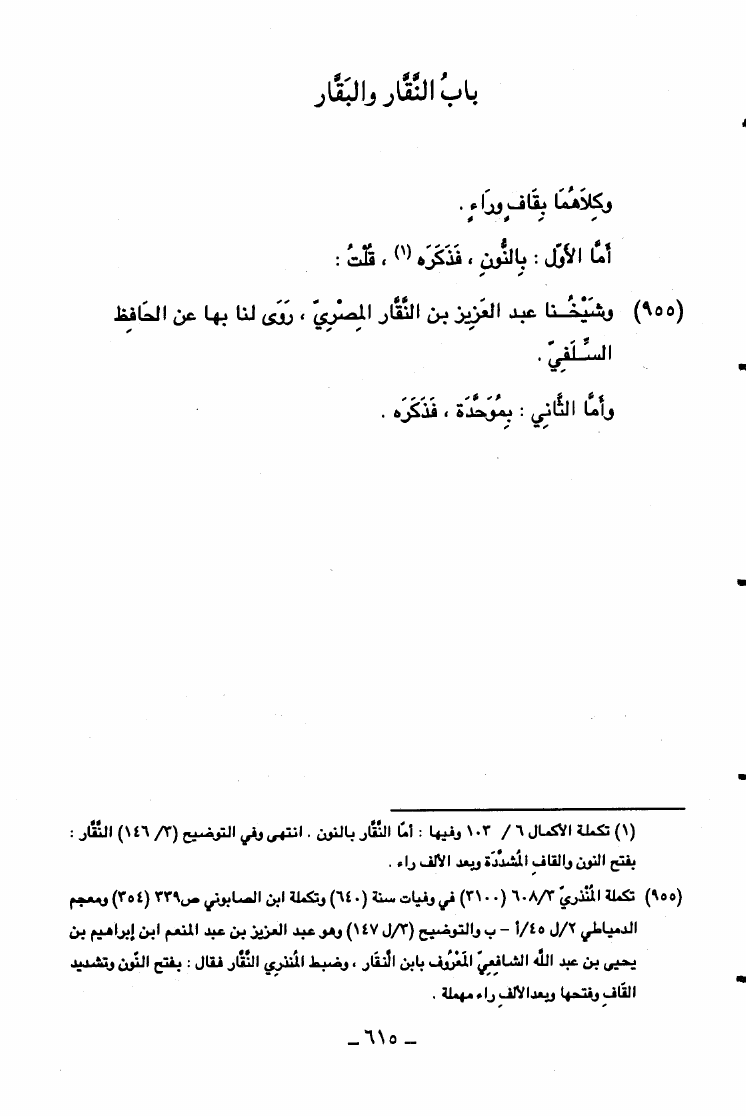 بابُ النَّقَّار والبَقَّار
وكِلاَهُمَا بِقَافٍ ورَاءٍ .
أمَّا الأوَّل : بِالنُّونِ ، فَذَكَرَه (١) ، قُلْتُ :
(٩٥٥) وشَيْخُـنا عبد العَزِيز بن النَّقَّار المِصْرِيّ ، رَوَى لنا بها عن الحَافِظ
السِّـلَفيّ .
وأمَّا الثَّانِي : بِمُوَحَّدَة ، فَذَكَرَه .
(١) تكملة الأكمال ٦ / ١٠٣ وفيها : أمّا النَّقَّار بالنون . انتهى وفي التوضيح (٣/ ١٤٦) النَّقَّار :
بفتح النون والقافِ المُشدَّدَة وبعد الألف راء .
(٩٥٥) تكملة المُنْذريّ ٦٠٨/٣ (٣١٠٠) في وفيات سنة (٦٤٠) وتكملة ابن الصابوني ص٣٣٩ (٣٥٤) ومعجم
الدمياطي ٢/ل ٤٥/أ – ب والتوضيح (٣/ل ١٤٧) وهو عبد العزيز بن عبد المنعم ابن إبراهيم بن
يحيى بن عبد الله الشافعِيّ المَعْرُوف بابن النقار ، وضبط المُنذري النَّقَّار فقال : بفتح النُون وتشديد
القَافِ وفتحها وبعدالألفِ راء مهملة .
– ٦١٥ –